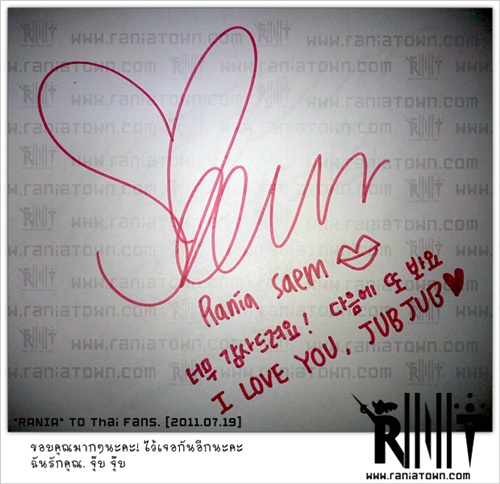 www.raniatown.com
Saem
Rania Saem
너무 감사드려요! 다음에 또 봐요
I LOVE YOU, JUBJUB
"RANIA" TO Thai Fans. [2011.07.19]
ขอบคุณมากๆนะคะ! ไว้เจอกันอีกนะคะ
ฉันรักคุณ. จุ๊บ จุ๊บ
www.raniatown.com